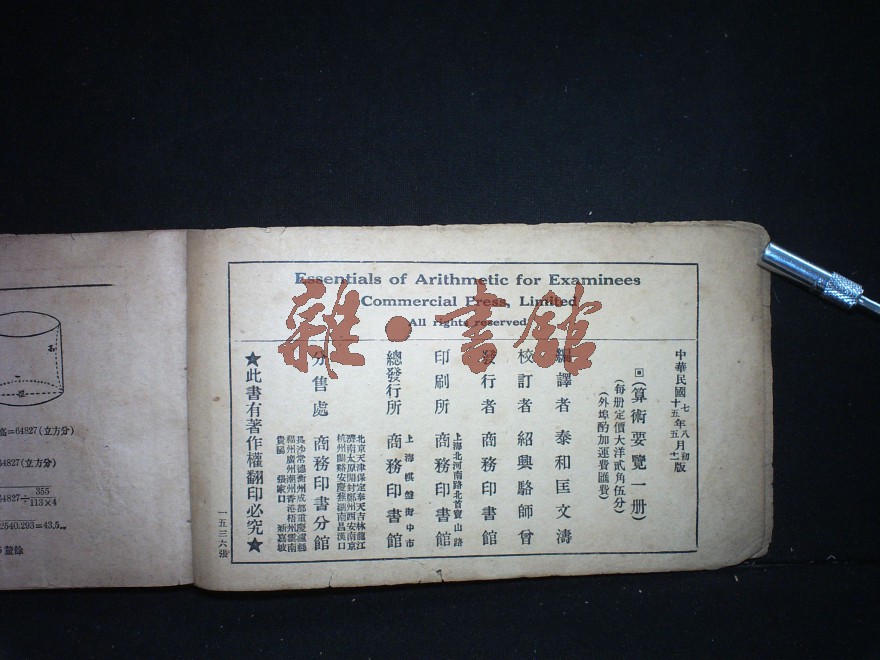 Essentials of Arithmetic for Examinees
Commercial Press, Limited
All rights reserved
雜・書館
中華民國
七年八月初
十五年五月十一
版
(算術要覽一册)
(每册定價大洋貳角伍分)
(外埠酌加運費匯費)
編譯者 泰和匡文濤
校訂者 紹興駱師曾
發行者 商務印書館
上海北河南路北首寶山路
印刷所 商務印書館
上海棋盤街中市
總發行所 商務印書館
分售處 商務印書分館
北京天津保定奉天吉林龍江
濟南太原開封鄭州西安南京
杭州蘭谿安慶蕪湖南昌漢口
長沙常德衡州成都重慶瀘縣
福州廣州潮州香港梧州雲南
貴陽 張家口 新嘉坡
★此書有著作權翻印必究★
一五三六張
高=64827(立方分)
64827(立方分)
64827÷355/113×4
2540.293=43.5
釐餘